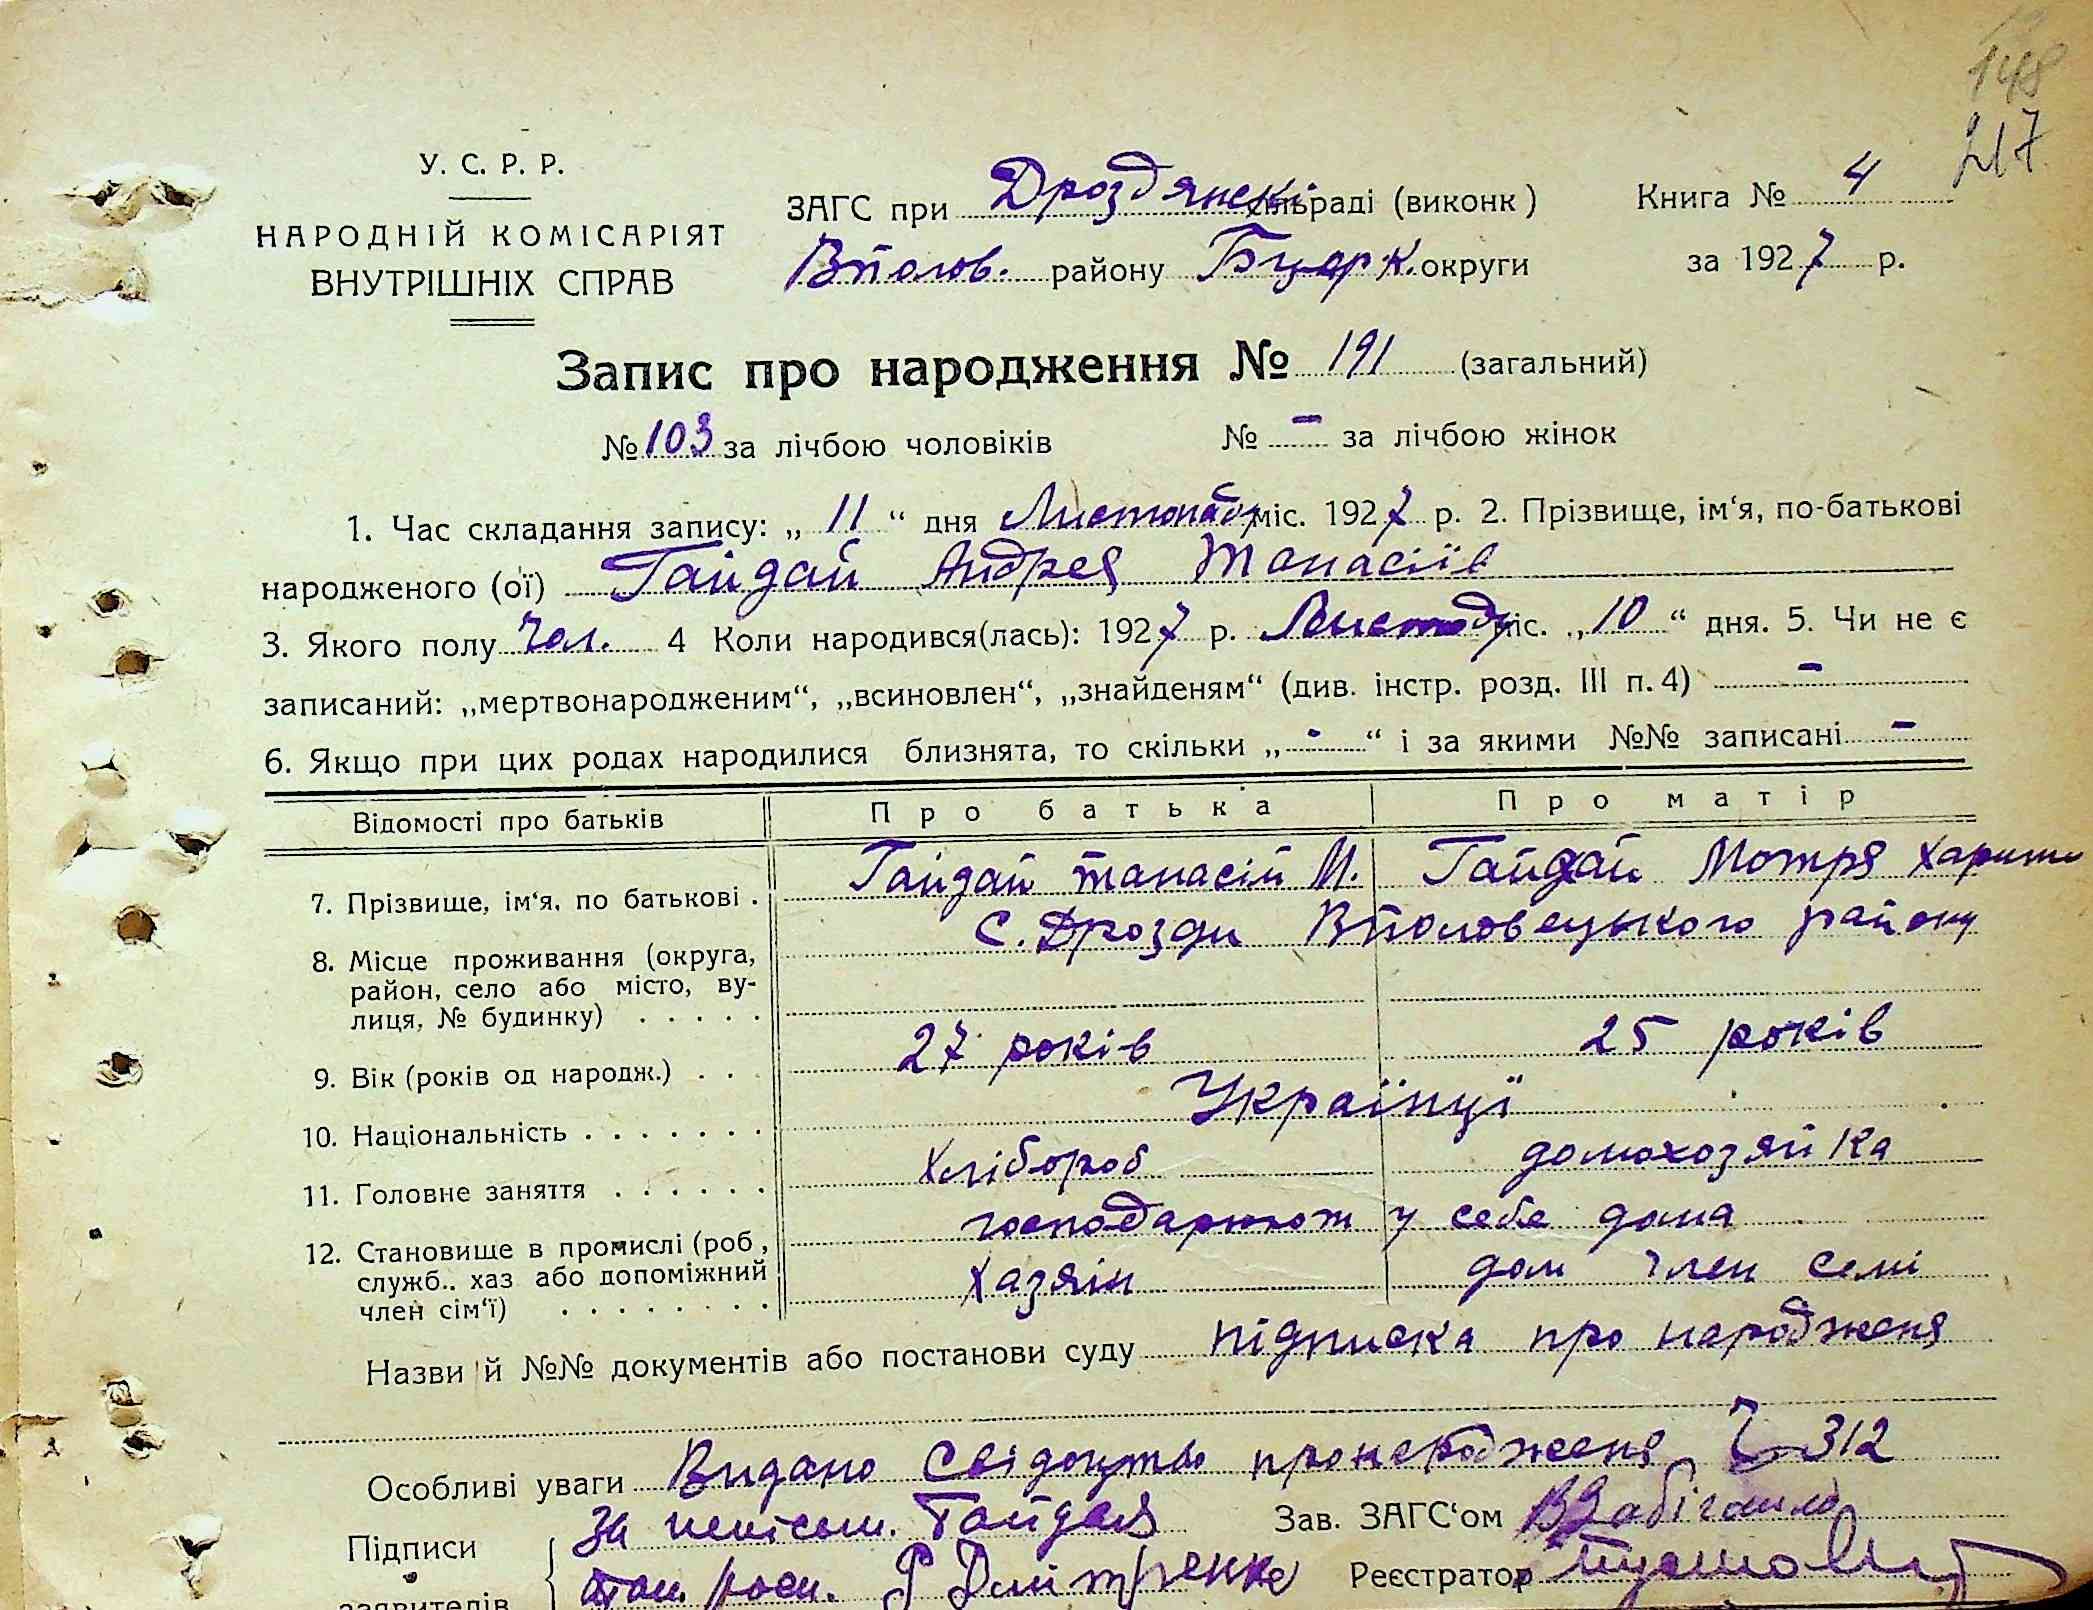 148
217
У. С. Р. Р.
НАРОДНІЙ КОМІСАРІЯТ
ВНУТРІШНІХ СПРАВ
ЗАГС при Дроздянскі сільраді (виконк)
Книга № 4
Вполов. району Бцерк. округи
за 1927 р.
Запис про народження № 191 (загальний)
№ 103 за лічбою чоловіків № – за лічбою жінок
1. Час складання запису: „ 11 “ дня Листопад міс. 1927 р. 2. Прізвище, ім‘я, по-батькові
народженого (ої) Гайдай Андрея Танасіїв
3. Якого полу Чол. 4 Коли народився(лась): 1927 р. Листоду міс. „10“ дня. 5. Чи не є
записаний: „мертвонародженим“, „всиновлен“, „знайденям“ (див. інстр. розд. III п. 4) –
6. Якщо при цих родах народилися близнята, то скільки „ - “ і за якими №№ записані –
Відомості про батьків Про батька Про матір
7. Прізвище, ім‘я, по батькові . Гайдай Танасій М. Гайдай Мотря Харит
8. Місце проживання (округа, С. Дрозди Вполовецького району
район, село або місто, ву-
лиця, № будинку) . . . . .
9. Вік (років од народж.) . . . 27 років 25 років
10. Національність . . . . . . . Українці
11. Головне заняття . . . . . . Хлібороб домохозяйка
12. Становище в промислі (роб, господарюють у себе дома
служб.. хаз або допоміжний Хазяін дом член семі
член сім‘ї) . . . . . . . .
Назви й №№ документів або постанови суду підписка про народженя
Особливі уваги Видано Свідоцтво про народженя Ч 312
Підписи За неписьм. Гайдая Зав. ЗАГС‘ом
заявителів Дмітренко Реєстратор